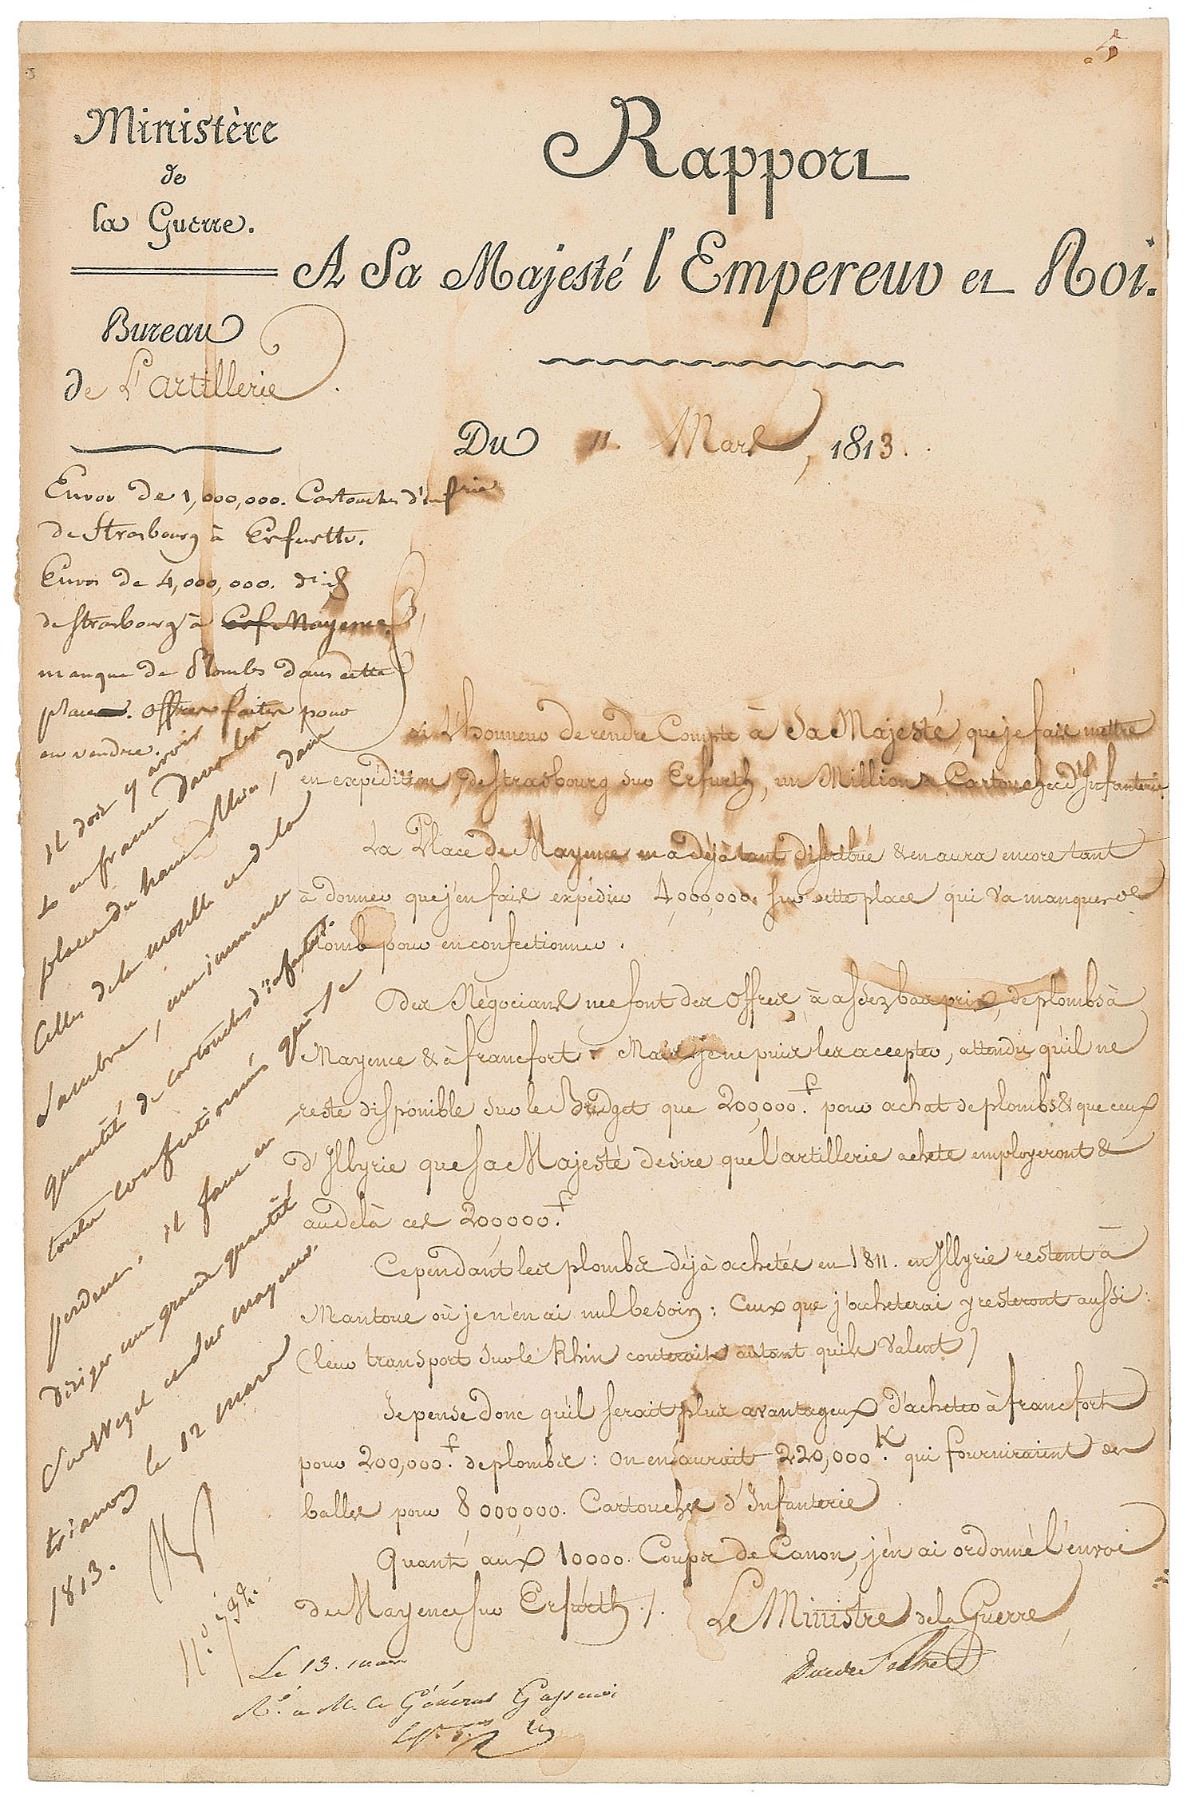 5
Ministère
de
la Guerre.
Bureau
de L'artillerie
Rapport
A Sa Majesté l'Empereur et Roi.
Du 11 Mars, 1813.
Envoi de 1,000,000. Cartouches d'inf.rie
de Strasbourg à Erfurth.
Envoi de 4,000,000. d°
de Strasbourg à Erf Mayence.
manque de Plombs dans cette
place. Offres faites pour
en vendre.
J'ai l'honneur de rendre Compte à Sa Majesté, que je fais mettre
en expédition, de Strasbourg sur Erfurth, un Million Cartouches d'Infanterie.
La Place de Mayence en a déjà tant distribué & en aura encore tant
à donner que j'en fais expédier 4,000,000. sur cette place qui va manquer de
plomb pour en confectionner.
Des Négocians me font des Offres, à assez bas prix, de plombs à
Mayence & à francfort. Mais je ne puis les accepter, attendu qu'il ne
reste disponible sur le Budget que 200,000.f pour achat de plombs & que ceux
d'Illyrie que Sa Majesté desire que l'artillerie achete employeront &
au delà ces 200,000.f
Cependant les plombs déjà achetés en 1811. en Illyrie restent à
Mantoue où je n'en ai nul besoin: Ceux que j'acheterai y resteront aussi:
(leur transport sur le Rhin couterait autant qu'ils valent)
Je pense donc qu'il serait plus avantageux d'acheter à francfort
pour 200,000.f de plombs: On en aurait 220,000 K. qui fourniraient des
balles pour 8 000 000. Cartouches d'Infanterie.
Quant aux 10000. Coups de Canon, j'en ai ordonné l'envoi
de Mayence sur Erfurth./.
Le Ministre de la Guerre,
Duc de Feltre
il doit y avoir
en france dans les
places du haut Rhin, dans
Celles de la moselle et de la
Sambre, une immense
quantité de cartouches d'infant.
toutes confectionnés qui se
perdent. il faut en
diriger une grande quantité
sur Wezel et sur mayence.
trianon le 12 mars
1813.
N
Le 13. mars
R.é à M. le Général Gassendi